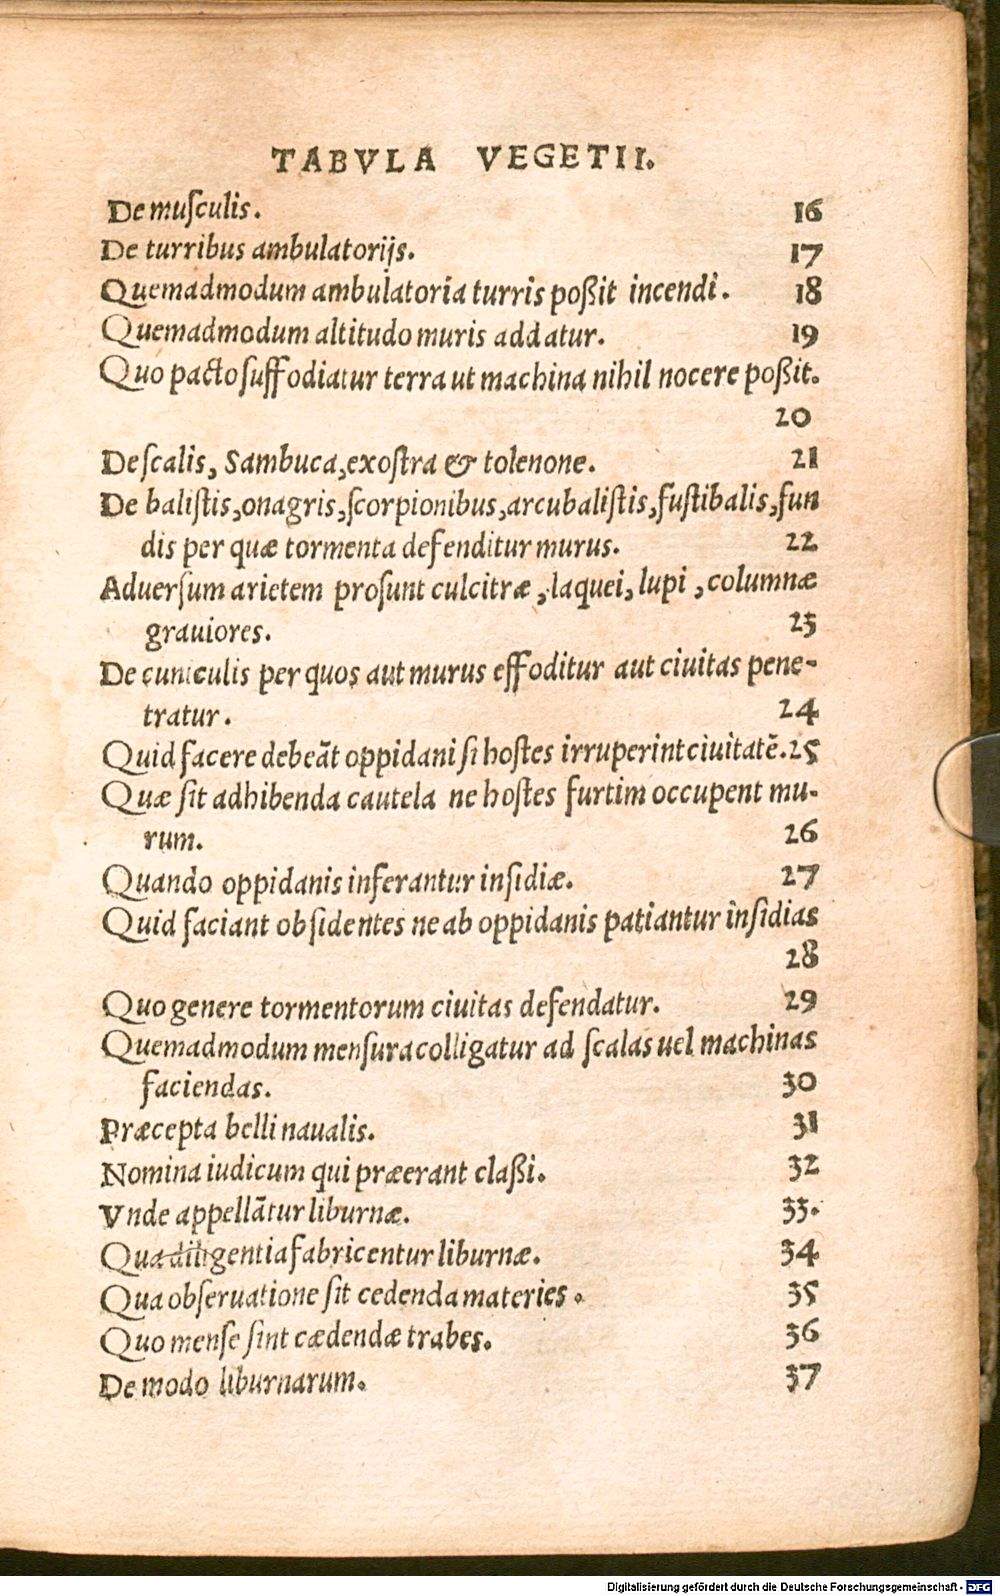 TABVLA VEGETII.
De muſculis. 16
De turribus ambulatorijs. 17
Quemadmodum ambulatoria turris poßit incendi. 18
Quemadmodum altitudo muris addatur. 19
Quo pacto ſuffodiatur terra ut machina nihil nocere poßit.
20
De ſcalis, Sambuca, exoſtra & tolenone. 21
De baliſtis, onagris, ſcorpionibus, arcubaliſtis, fuſtibalis, fun
dis per quæ tormenta defenditur murus. 22
Aduerſum arietem proſunt culcitræ, laquei, lupi, columnæ
grauiores. 23
De cuniculis per quos aut murus effoditur aut ciuitas pene-
tratur. 24
Quid facere debeāt oppidani ſi hoſtes irruperint ciuitatē. 25
Quæ ſit adhibenda cautela ne hoſtes furtim occupent mu-
rum. 26
Quando oppidanis inferantur inſidiæ. 27
Quid faciant obſidentes ne ab oppidanis patiantur inſidias
28
Quo genere tormentorum ciuitas defendatur. 29
Quemadmodum menſura colligatur ad ſcalas uel machinas
faciendas. 30
Præcepta belli naualis. 31
Nomina iudicum qui præerant claßi. 32
Vnde appellātur liburnæ. 33.
Qua diligentia fabricentur liburnæ. 34
Qua obſeruatione ſit cedenda materies. 35
Quo menſe ſint cædendæ trabes. 36
De modo liburnarum. 37
Digitalisierung gefördert durch die Deutsche Forschungsgemeinschaft - DFG